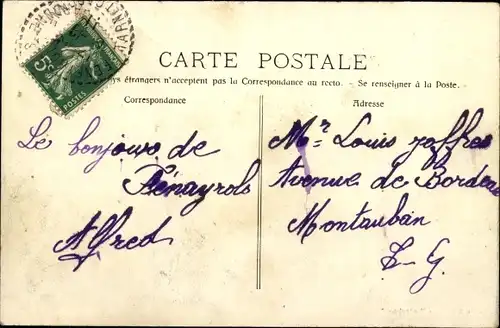 CARTE POSTALE
ys étrangers n'acceptent pas la Correspondance au recto. - Se renseigner à la Poste.
Correspondance
Le bonjour de
Penayrols
Alfred
Adresse
Mr Louis Jaffres
Avenue de Bordeau
Montauban
T-G.
5c
POSTES